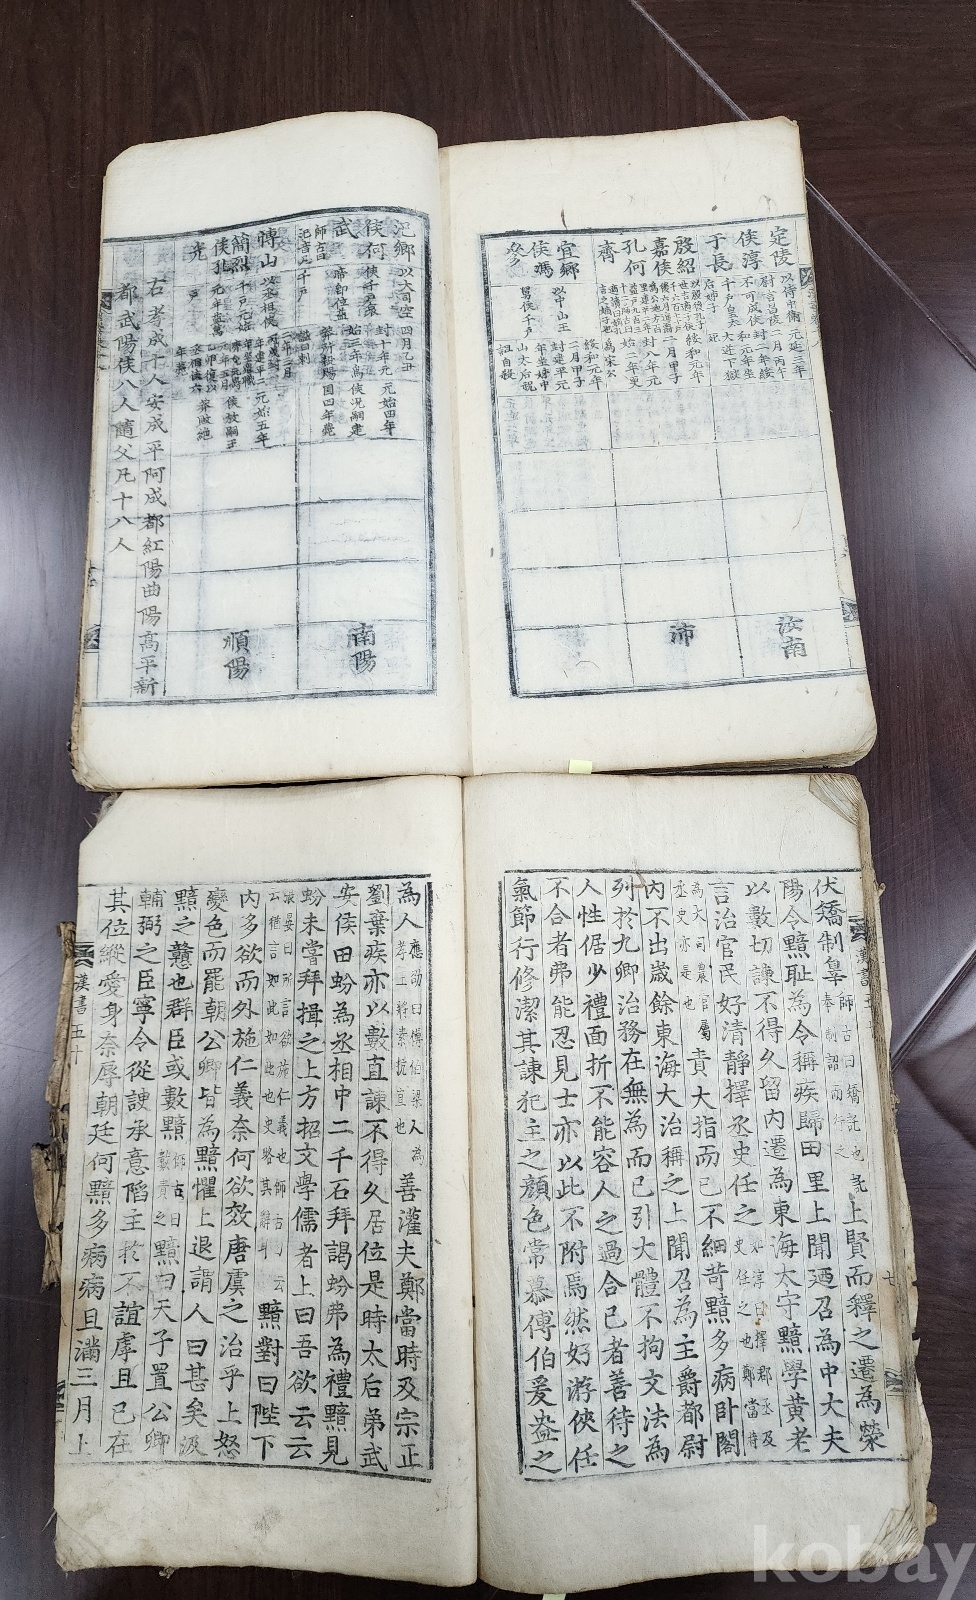 定陵
侯淳
于長
以侍中衛
尉言昌陵
不可成侯
千戶皇太
后姊子
元延三年
二月丙午
封二年綏
和元年坐
大逆下獄
死
汝南
殷紹
嘉侯
孔何
齊
以殷後孔子
綏和元年
二月甲子
封八年元
始二年更
為宋公
沛
宜鄉
侯馮
參
以中山王
舅侯千戶
綏和元年
二月甲子
封建平元
年坐姊中
山太后祝
詛自殺
氾鄉
侯何
武
以大司空
侯千戶哀
帝即位益
千戶
四月乙丑
封十年元
始三年為
莽所殺賜
諡曰剌
元始四年
侯況嗣建
國四年薨
南陽
博山
簡烈
侯孔
光
以丞相侯
千戶元始
元年益萬
戶
元始五年
侯放嗣王
莽敗絕
順陽
右孝成十人安成平阿成都紅陽曲陽高平新
都武陽侯八人隨父凡十八人
伏矯制辠師古曰矯託也託奉制詔而行之上賢而釋之遷為滎
陽令黯恥為令稱疾歸田里上聞迺召為中大夫
以數切諫不得久留內遷為東海太守黯學黃老
言治官民好清靜擇丞史任之如淳曰擇郡丞及史任之也鄭當時
為大司農官屬丞史亦是也責大指而已不細苛黯多病臥閤
內不出歲餘東海大治稱之上聞召為主爵都尉
列於九卿治務在無為而已引大體不拘文法為
人性倨少禮面折不能容人之過合己者善待之
不合者弗能忍見士亦以此不附焉然好游俠任
氣節行修潔其諫犯主之顏色常慕傅伯爰盎之
漢書五十
七
為人應劭曰傅伯梁人為孝王將素抗直也善灌夫鄭當時及宗正
劉棄疾亦以數直諫不得久居位是時太后弟武
安侯田蚡為丞相中二千石拜謁蚡弗為禮黯見
蚡未嘗拜揖之上方招文學儒者上曰吾欲云云
張晏曰所言欲施仁義也師古曰云云猶言如此如此也史略其辭耳黯對曰陛下
內多欲而外施仁義奈何欲效唐虞之治乎上怒
變色而罷朝公卿皆為黯懼上退謂人曰甚矣汲
黯之戇也群臣或數黯師古曰數責之黯曰天子置公卿
輔弼之臣寧令從諛承意陷主於不誼虖且已在
其位縱愛身奈辱朝廷何黯多病病且滿三月上
漢書五十
kobay